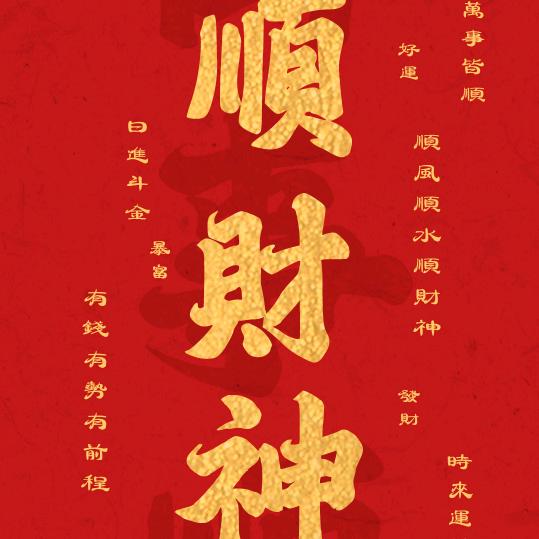 萬事皆順
好運
順風順水順財神
發財
時來運
順財神
日進斗金
暴富
有錢有勢有前程